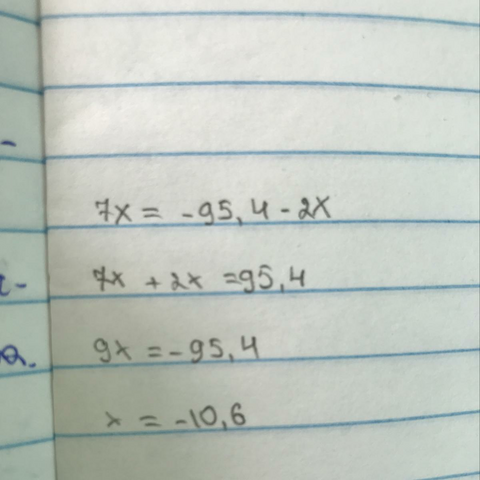 7x = -95,4 - 2x
7x + 2x = 95,4
9x = -95,4
x = -10,6